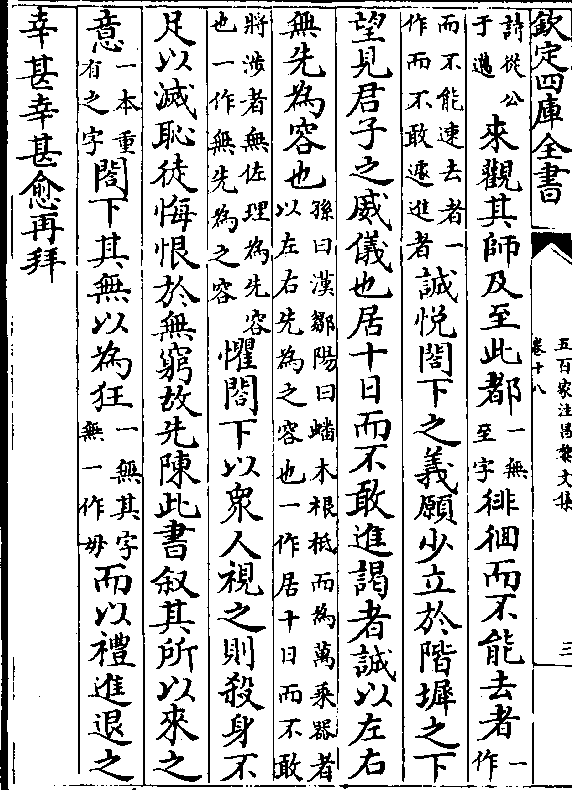 欽定四庫全書
五百家注昌黎文集
卷十八
三
詩從公
于邁
來觀其師及至此都
一無
至字
徘徊而不能去者
一
作
而不能速去者一
作而不敢遽進者
誠悦閤下之義願少立於階墀之下
望見君子之威儀也居十日而不敢進謁者誠以左右
無先為容也
孫曰漢鄒陽曰蟠木根柢而為萬乘器者
以左右先為之容也一作居十日而不敢
將涉者無佐理為先容
也一作無先為之容
懼閤下以衆人視之則殺身不
足以滅恥徒悔恨於無窮故先陳此書叙其所以來之
意
一本重
有之字
閤下其無以為狂
一無其字
無一作毋
而以禮進退之
幸甚幸甚愈再拜